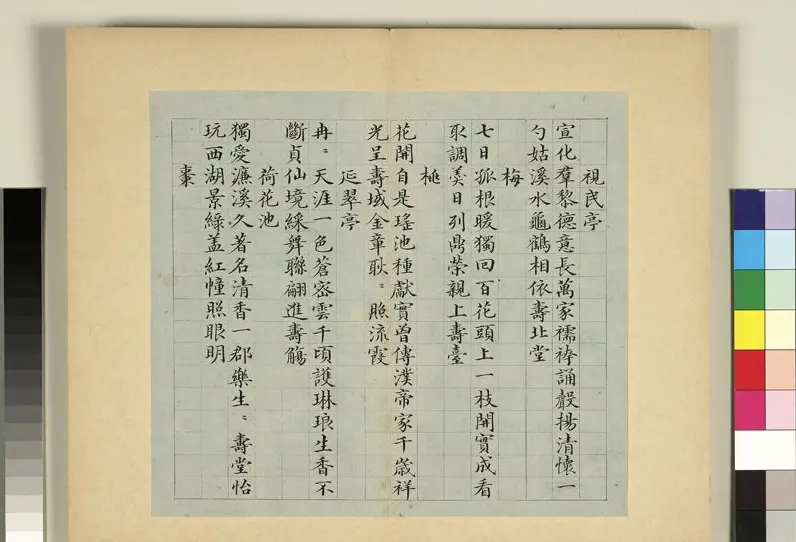 視民亭
宣化羣黎德意長萬家襦袴誦聲揚清懷一
勺姑溪水龜鶴相依壽北堂
梅
七日孤根暖獨回百花頭上一枝開實成看
取調羹日列鼎榮親上壽臺
桃
花開自是瑤池種獻實曾傳漢帝家千歲祥
光呈壽域金章耿〻照流霞
延翠亭
冉〻天涯一色蒼密雲千頃護琳琅生香不
斷貞仙境綵舞聯翩進壽觴
荷花池
獨愛濂溪久著名清香一郡樂生〻壽堂怡
玩西湖景綠蓋紅幢照眼明
棗